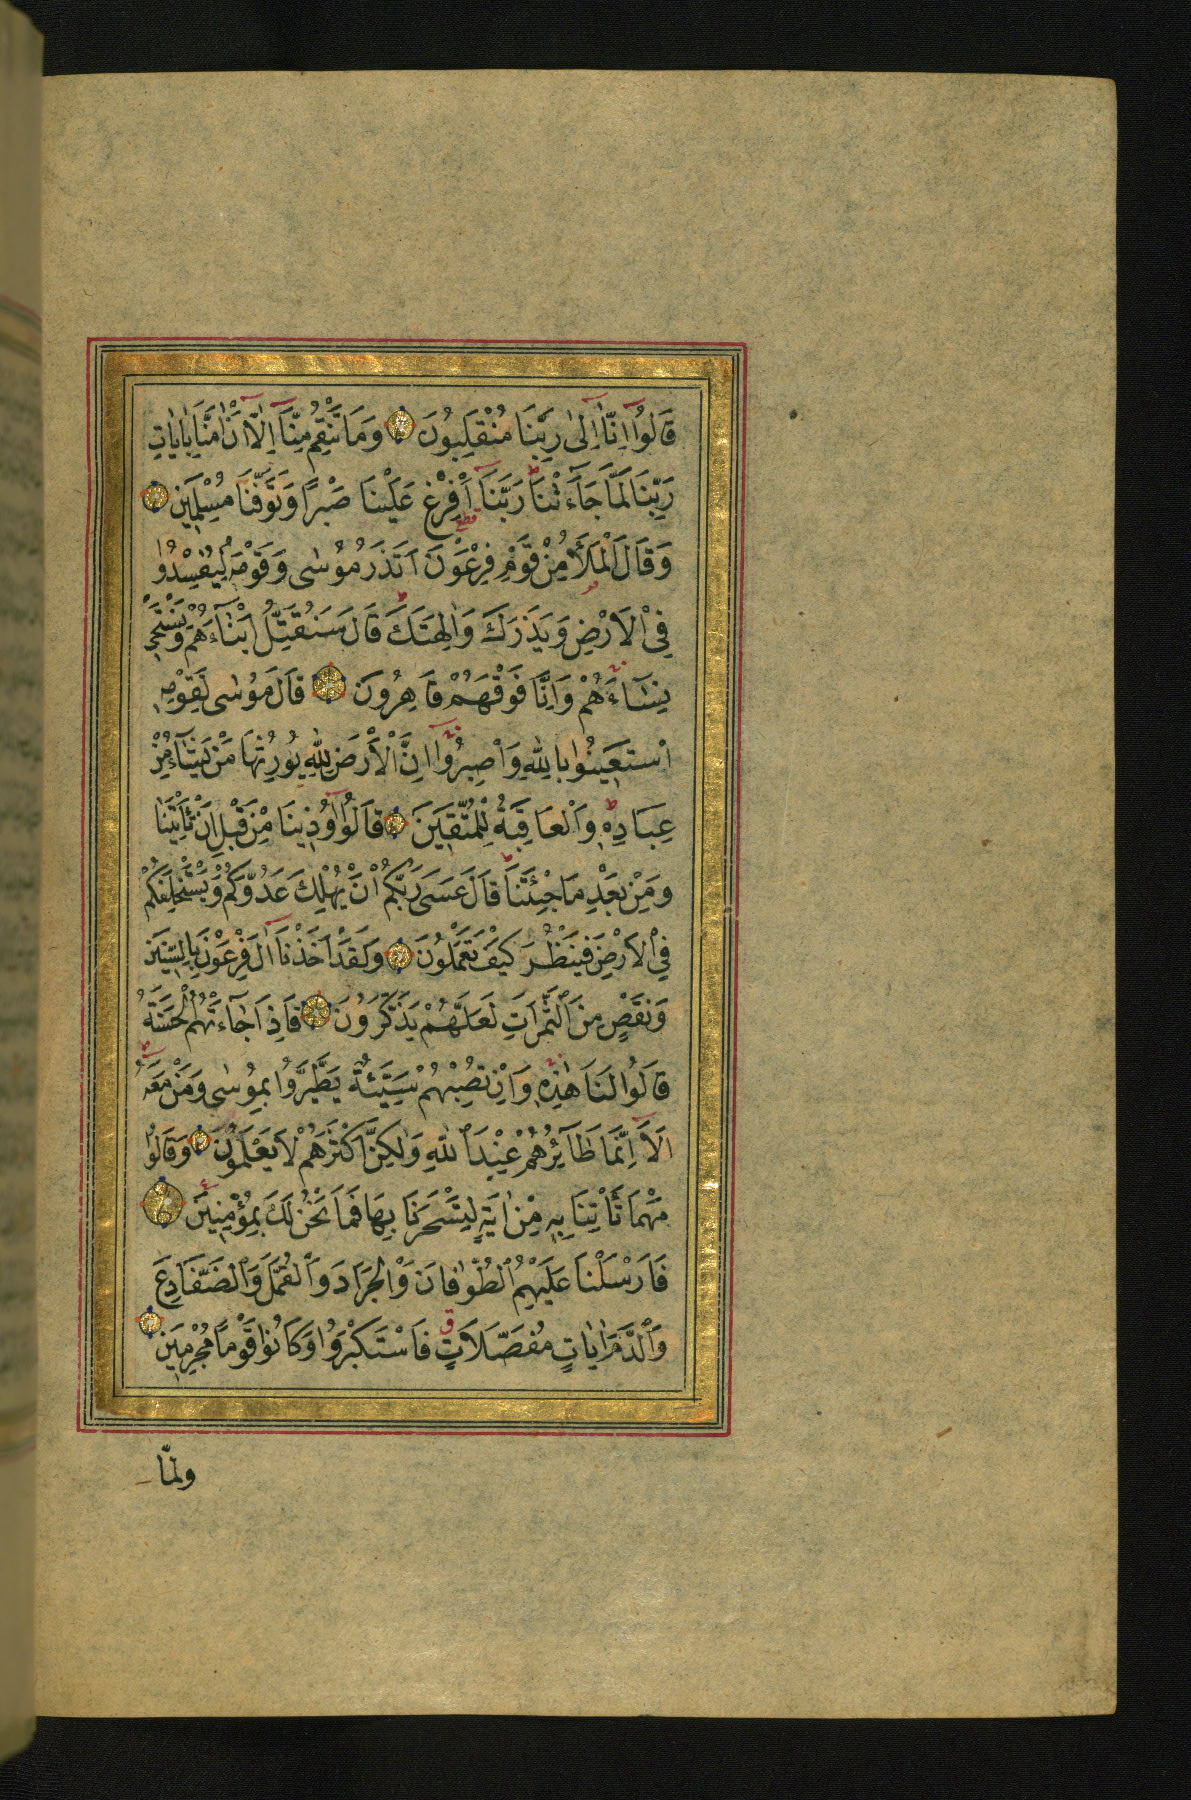 قَالُوا اِنَّا اِلٰى رَبِّنَا مُنْقَلِبُونَ وَمَا تَنْقِمُ مِنَّا اِلَّا اَنْ اٰمَنَّا بِاٰيَاتِ
رَبِّنَا لَمَّا جَاءَتْنَا رَبَّنَا اَفْرِغْ عَلَيْنَا صَبْرًا وَتَوَفَّنَا مُسْلِمِينَ
وَقَالَ الْمَلَأُ مِنْ قَوْمِ فِرْعَوْنَ اَتَذَرُ مُوسٰى وَقَوْمَهُ لِيُفْسِدُوا
فِي الْاَرْضِ وَيَذَرَكَ وَاٰلِهَتَكَ قَالَ سَنُقَتِّلُ اَبْنَاءَهُمْ وَنَسْتَحْيِي
نِسَاءَهُمْ وَاِنَّا فَوْقَهُمْ قَاهِرُونَ قَالَ مُوسٰى لِقَوْمِهِ
اسْتَعِينُوا بِاللّٰهِ وَاصْبِرُوا اِنَّ الْاَرْضَ لِلّٰهِ يُورِثُهَا مَنْ يَشَاءُ مِنْ
عِبَادِهِ وَالْعَاقِبَةُ لِلْمُتَّقِينَ قَالُوا اُوذِينَا مِنْ قَبْلِ اَنْ تَأْتِيَنَا
وَمِنْ بَعْدِ مَا جِئْتَنَا قَالَ عَسٰى رَبُّكُمْ اَنْ يُهْلِكَ عَدُوَّكُمْ وَيَسْتَخْلِفَكُمْ
فِي الْاَرْضِ فَيَنْظُرَ كَيْفَ تَعْمَلُونَ وَلَقَدْ اَخَذْنَا اٰلَ فِرْعَوْنَ بِالسِّنِينَ
وَنَقْصٍ مِنَ الثَّمَرَاتِ لَعَلَّهُمْ يَذَّكَّرُونَ فَاِذَا جَاءَتْهُمُ الْحَسَنَةُ
قَالُوا لَنَا هٰذِهِ وَاِنْ تُصِبْهُمْ سَيِّئَةٌ يَطَّيَّرُوا بِمُوسٰى وَمَنْ مَعَهُ
اَلَا اِنَّمَا طَائِرُهُمْ عِنْدَ اللّٰهِ وَلٰكِنَّ اَكْثَرَهُمْ لَا يَعْلَمُونَ وَقَالُوا
مَهْمَا تَأْتِنَا بِهِ مِنْ اٰيَةٍ لِتَسْحَرَنَا بِهَا فَمَا نَحْنُ لَكَ بِمُؤْمِنِينَ
فَاَرْسَلْنَا عَلَيْهِمُ الطُّوفَانَ وَالْجَرَادَ وَالْقُمَّلَ وَالضَّفَادِعَ
وَالدَّمَ اٰيَاتٍ مُفَصَّلَاتٍ فَاسْتَكْبَرُوا وَكَانُوا قَوْمًا مُجْرِمِينَ
ولمّا